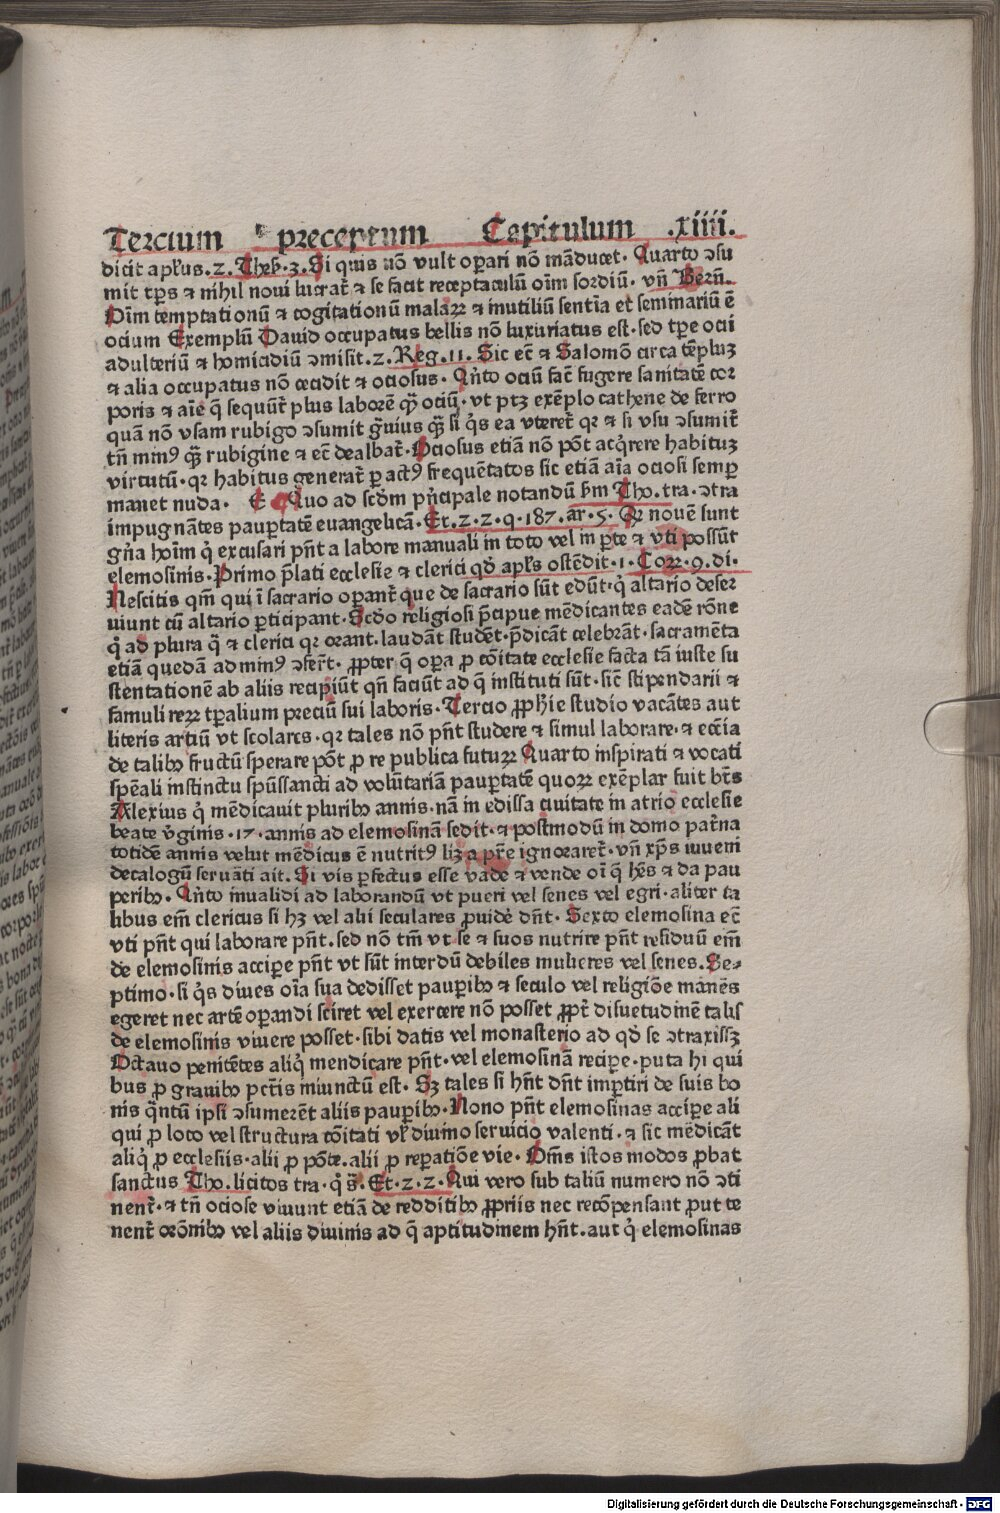 Tercium preceptum Capitulum .xiiii.
dicit apl'us.2. Thes̄.3. Si quis nō vult oꝑari nō māducet. Quarto ↄ̄su
mit tꝑs ⁊ nihil noui lucrat᷑ ⁊ se facit receptaculū oīm sordiū. vñ Bern̄.
Oīm temptationū ⁊ cogitationū malaꝝ ⁊ inutiliū sentīa et seminariū ē
ocium Exemplū Dauid occupatus bellis nō luxuriatus est. sed tꝑe ocii
adulteriū ⁊ homicidiū ↄmisit.2. Reg.11. Sic ec̄ ⁊ Salomō circa tēpluꝫ
⁊ alia occupatus nō cecidit ⁊ ociosus. Q̇nto ociū fac̄ fugere sanitatē cor
poris ⁊ aīe q̄ sequūt᷑ plus laborē q̄ꝫ ociū. vt ptꝫ exēplo cathene de ferro
quā nō vsam rubigo ↄsumit g̑uius q̄ꝫ si q̇s ea vteret᷑ qꝛ ⁊ si vsu ↄsumit᷑
tn̄ minꝰ q̄ꝫ rubigine ⁊ ec̄ dealbat᷑. Ociosus etiā nō pōt acq̇rere habituꝫ
virtutū. qꝛ habitus generat᷑ ꝑ actꝰ frequētatos sic etiā aīa ociosi semꝑ
manet nuda. E Quo ad scd̄m pn̄cipale notandū s̄m Tho. tra. ↄtra
impugnātes pauꝑtatē euangelicā. Et.2.2.q.187.ar̄.5. Qꝛ nouē sunt
gn̄a hoīm q̇ excusari pn̄t a labore manuali in toto vel in ꝑte ⁊ vti possūt
elemosinis. Primo p̄lati ecclesie ⁊ clerici qd̄ apl's ostēdit.1. Corꝝ.9. di.
Nescitis qm̄ qui ī sacrario oꝑant᷑ que de sacrario sūt edūt. q̇ altario deser
uiunt cū altario ꝑticipant. Scd̄o religiosi p̄cipue mēdicantes eadē rōne
q̇ ad plura q̄ ⁊ clerici qꝛ orant. laudāt studēt. p̄dicāt celebrāt. sacramēta
etiā quedā ad minꝰ ↄfer̄t. ꝓpter q̄ oꝑa ꝓ cōitate ecclesie facta tā iuste su
stentationē ab aliis recipiūt qn̄ faciūt ad q̄ instituti sūt. sic̄ stipendarii ⁊
famuli reꝝ tꝑalium preciū sui laboris. Tercio ꝓph̄ie studio vacātes aut
literis artiū vt scolares. qꝛ tales nō pn̄t studere ⁊ simul laborare. ⁊ ecc̄ia
de talibꝰ fructū sperare pōt ꝓ re publica futuꝝ Quarto inspirati ⁊ vocati
spēali instinctu spūssancti ad volūtariā pauꝑtatē quoꝝ exēplar fuit bt̄s
Alexius q̇ mēdicauit pluribꝰ annis. nā in edissa ciuitate in atrio ecclesie
beate v̄ginis.17. annis ad elemosinā sedit. ⁊ postmodū in domo pat̄na
totidē annis velut mēdicus ē nutritꝰ licꝫ a pr̄e ignoraret᷑. vñ xp̄s iuueni
decalogū seruāti ait. Si vis ꝑfectus esse vade ⁊ vende oīa q̄ hēs ⁊ da pau
peribꝰ. Q̇nto inualidi ad laborandū vt pueri vel senes vel egri. aliter ta
libus em̄ clericus si hꝫ vel alii seculares ꝓuidē dn̄t. Sexto elemosina ec̄
vti pn̄t qui laborare pn̄t. sed nō tm̄ vt se ⁊ suos nutrire pn̄t residuū em̄
de elemosinis acciꝑe pn̄t vt sūt interdū debiles mulieres vel senes. Se-
ptimo. si q̇s diues oīa sua dedisset pauꝑibꝰ ⁊ seculo vel religiōe manēs
egeret nec artē oꝑandi sciret vel exercere nō posset ꝓpt᷑ disuetudinē talis
de elemosinis viuere posset. sibi datis vel monasterio ad qd̄ se ↄtraxissꝫ
Octauo penitētes aliq̇ mendicare pn̄t. vel elemosinā reciꝑe. puta hi qui
bus ꝓ grauibꝰ pct̄is iniunctū est. Sꝫ tales si hn̄t dn̄t imꝑtiri de suis bo
nis q̄ntū ipsi ↄsumerēt aliis pauꝑibꝰ. Nono pn̄t elemosinas acciꝑe ali
qui ꝓ loco vel structura cōitati vl' diuino seruicio valenti. ⁊ sic mēdicāt
aliq̇ ꝓ ecclesiis. alii ꝓ pōte. alii ꝓ reꝑatiōe vie. Om̄s istos modos ꝓbat
sanctus Tho. licitos tra. q̇ s̄. Et.2.2. Qui vero sub taliū numero nō ↄti
nent᷑. ⁊ tn̄ ociose viuunt etiā de redditibꝰ ꝓpriis nec recōpensant ꝓut te
nent᷑ orōnibꝰ vel aliis diuinis ad q̄ aptitudinem hn̄t. aut q̇ elemosinas
Digitalisierung gefördert durch die Deutsche Forschungsgemeinschaft - DFG